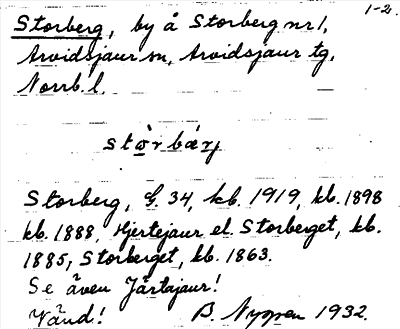 1-2.
Storberg, by å Storberg nr 1,
Arvidsjaur sn, Arvidsjaur tg,
Norrb. l.
stòr bærj
Storberg, G. 34, kb. 1919, kb. 1898
kb. 1888, Hjertejaur el. Storberget, kb.
1885, Storberget, kb. 1863.
Se även Järtajaur!
Vänd! B. Nygren 1932.